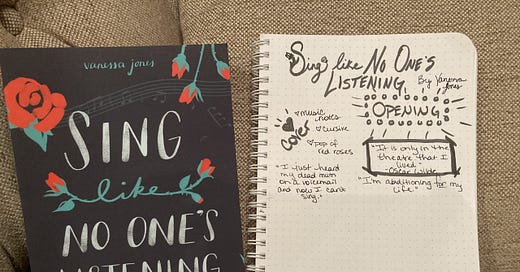 vanessa jones
SING
like
NO ONE'S
LISTENING
Sing like NO ONE'S
LISTENING
By Vanessa
Jones
OPENING
COVER
music
notes
cursive
pop of
red roses
"It is only in the
theatre that I
lived"
-Oscar Wilde
"I'm auditioning for my
life"
"I just heard
my dead mom
on a voicemail
and now I can't
sing."